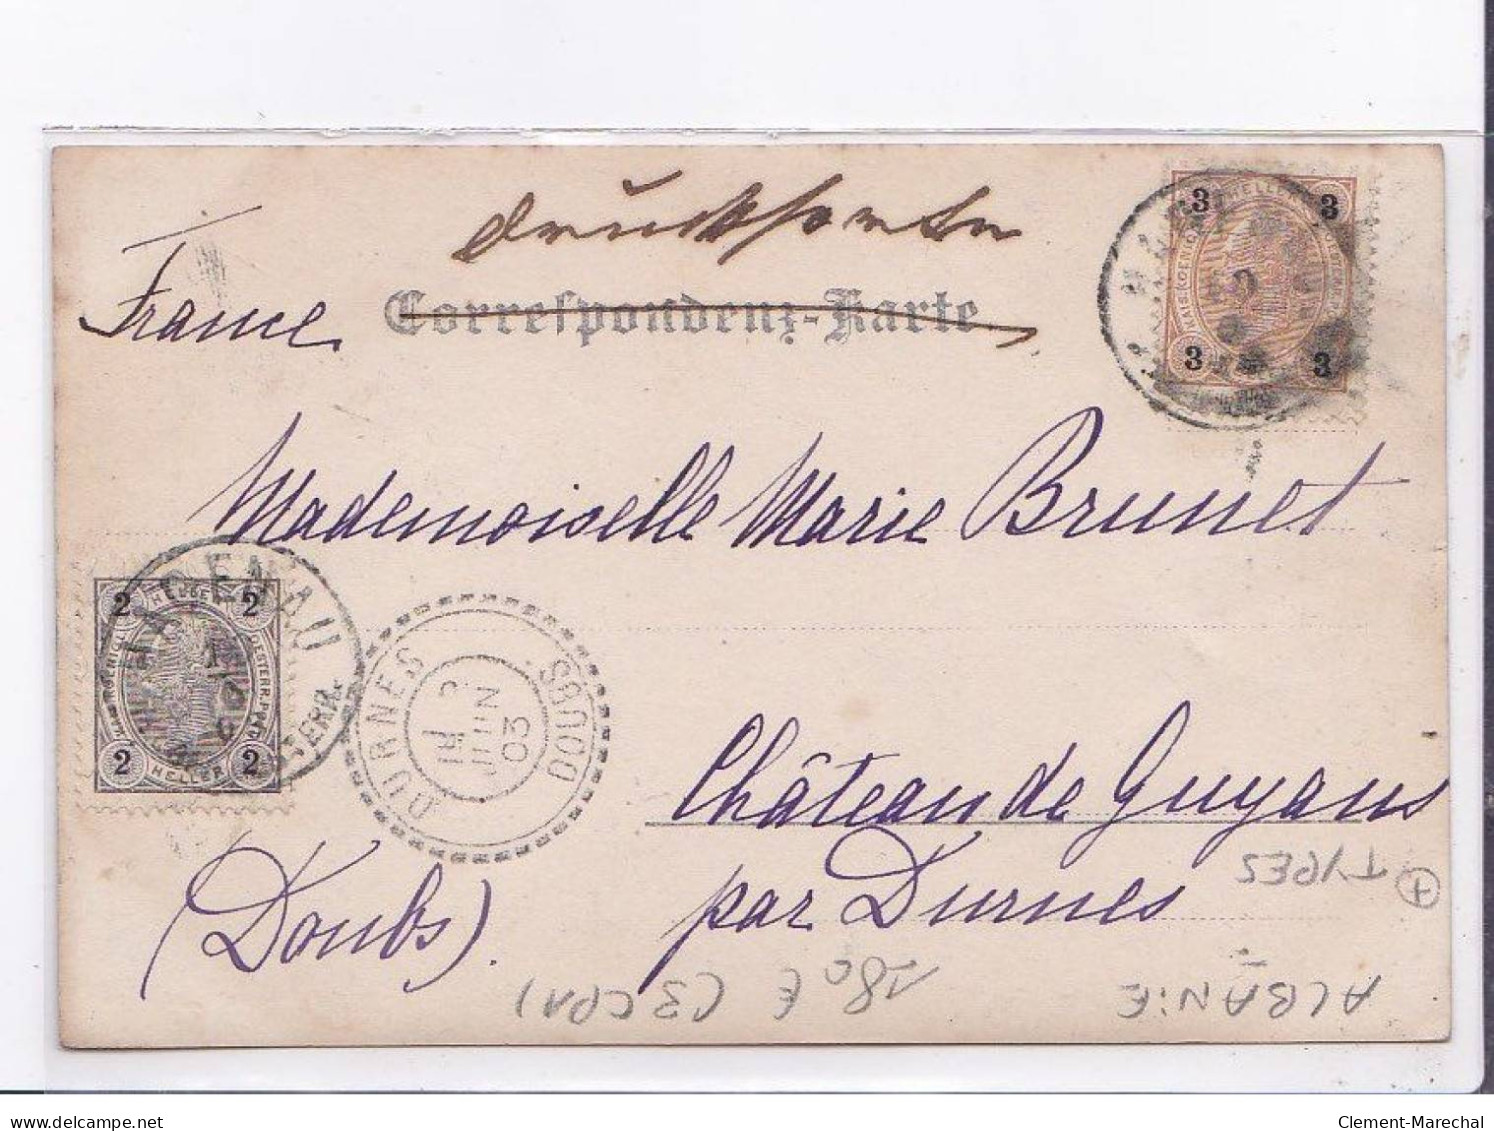 Drucksorten
France
Correspondenz-Karte
3 HELLER 3
3 3
Mademoiselle Marie Brunet
2 HELLER 2
2 HELLER 2
HARDENAU
DURNES DOUBS
JUIN
03
Château de Guyans
par Durnes
(Doubs).
TYPES
ALBANIE
180 E (3 CPA)
delcampe.net
Clement-Marechal